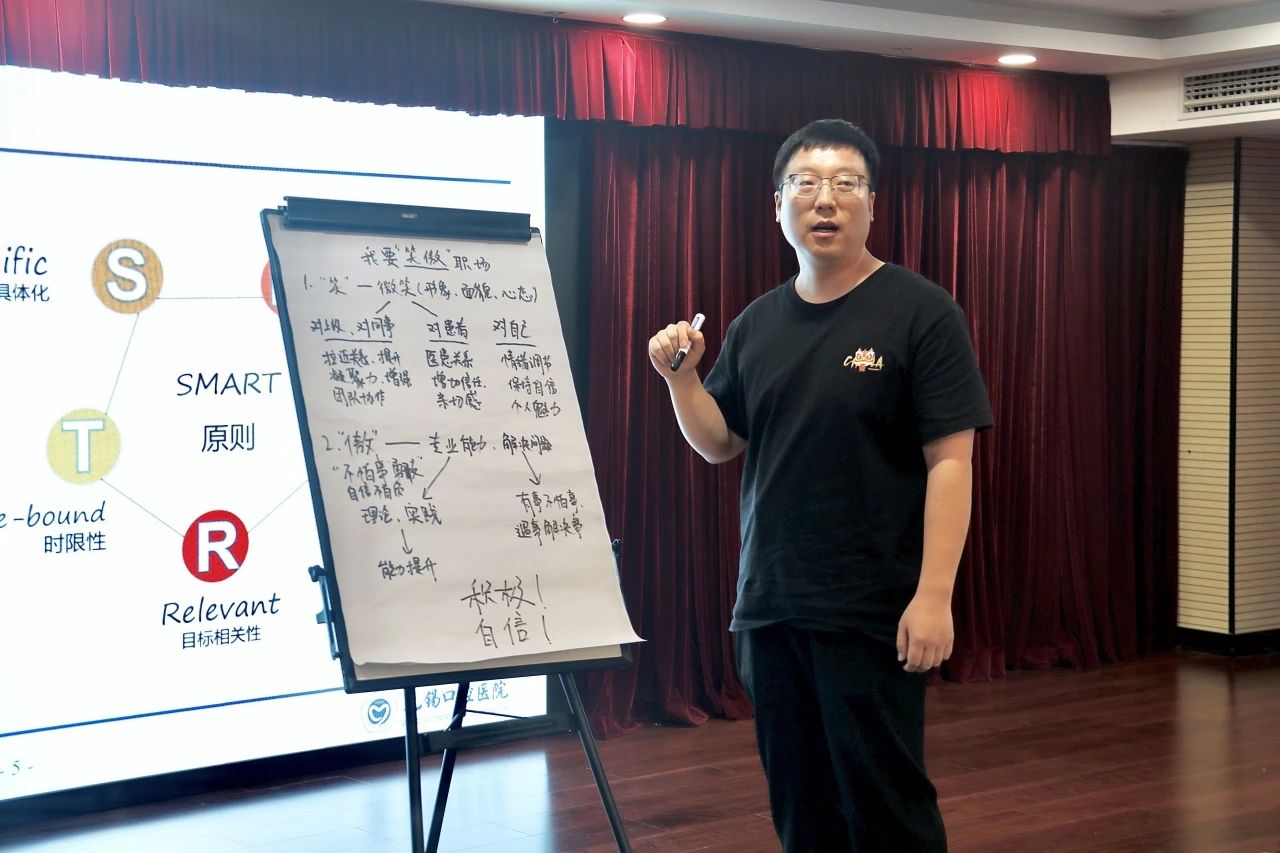 ific
具体化
S
SMART
原则
T
e-bound
时限性
R
Relevant
目标相关性
锡口腔医院
- 5 -
我要“笑傲”职场
1. “笑”—微笑(形象、面貌、心态)
对上级、对同事
拉近关系、提升
凝聚力、增强
团队协作
对患者
医患关系
增加信任、
亲切感
对自己
情绪调节
保持自信
个人魅力
2. “傲”——专业能力、解决问题
“不怕事 勇敢”
自信不自负
理论、实践
能力提升
有事不怕事、
遇事解决事
积极!
自信!